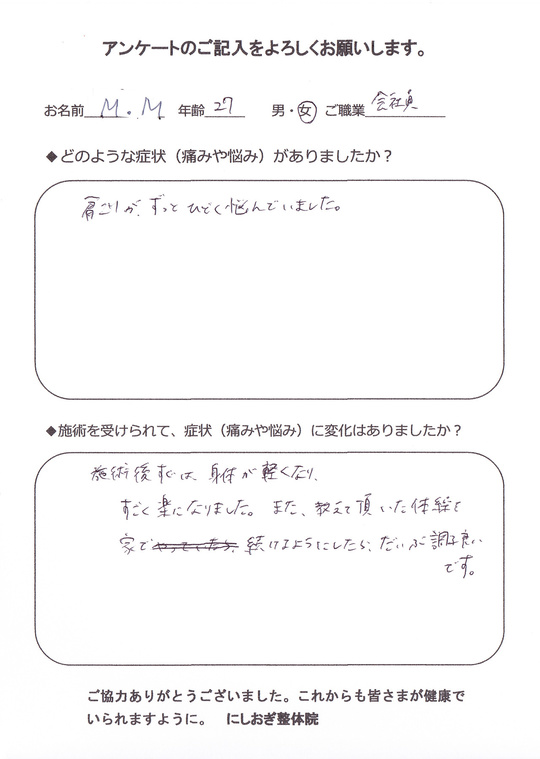 アンケートのご記入をよろしくお願いします。
お名前 M.M 年齢 27 男・女 ご職業 会社員
◆どのような症状（痛みや悩み）がありましたか？
肩こりが、ずっとひどく悩んでいました。
◆施術を受けられて、症状（痛みや悩み）に変化はありましたか？
施術後すぐは、身体が軽くなり、
すごく楽になりました。また、教えて頂いた体操を
家でやっていたら、続けるようにしたら、だいぶ調子良い
です。
ご協力ありがとうございました。これからも皆さまが健康で
いられますように。 にしおぎ整体院